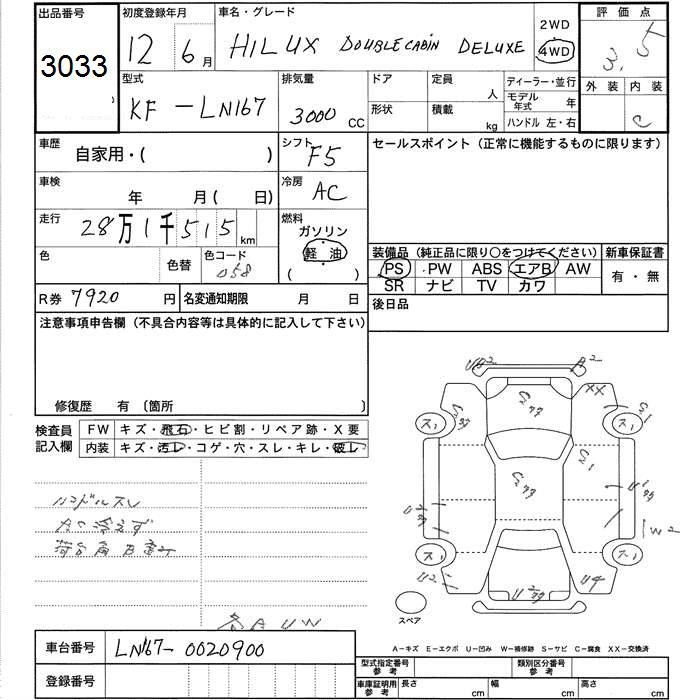 出品番号 初度登録年月 車名・グレード 2WD 評価点
3033 12 6月 HILUX DOUBLECABIN DELUXE 4WD 3.5
型式 排気量 ドア 定員 ディーラー・並行 外装 内装
KF-LN167 3000 CC 形状 人 モデル年式 年 C
積載 kg ハンドル 左・右
車歴 自家用・( ) シフト F5 セールスポイント (正常に機能するものに限ります)
車検 年 月( 日) 冷房 AC
走行 28万1千515km 燃料 ガソリン
色 色替 色コード 058 軽油 ( )
装備品 (純正品に限り○をつけてください) 新車保証書
PS ・PW ABS エアB AW 有・無
SR ナビ TV カワ
R券 7920円 名変通知期限 月 日 後日品
注意事項申告欄 (不具合内容等は具体的に記入して下さい)
修復歴 有 〔箇所
検査員記入欄 FW キズ・飛石・ヒビ割・リペア跡・X要
内装 キズ・汚レ・コゲ・穴・スレ・キレ・破レ
ハンドルスレ
AC冷えず
各AUW
UA2 A2
XX
S73
S1
S73
S1
ス1 ス1
ス1 ス1
W2
U2 U4
スペア
A-キズ E-エクボ U-凹み W-補修跡 S-サビ C-腐食 XX-交換済
車台番号 LN167-0020900
登録番号
型式指定番号 参考 類別区分番号 参考
車庫証明用 参考 長さ cm 幅 cm 高さ cm